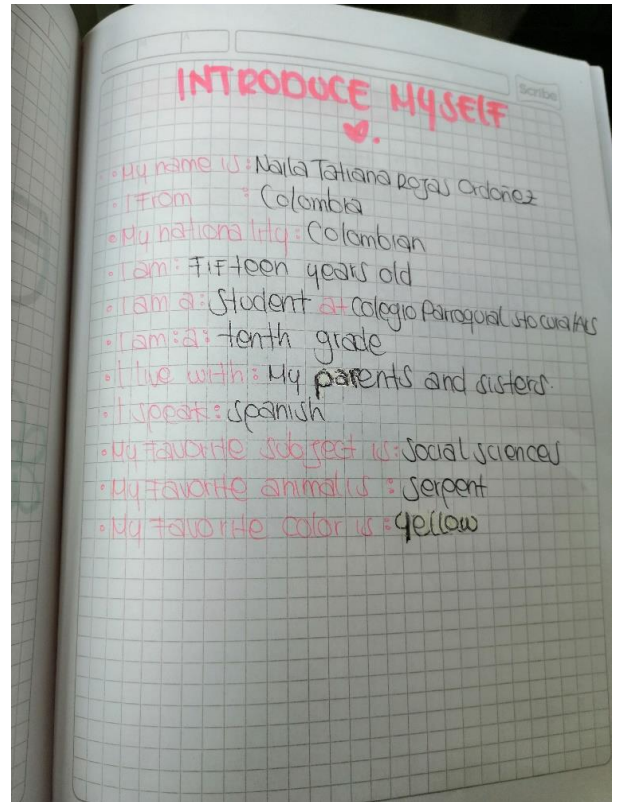 Scribe
INTRODUCE MYSELF
• My name is: Naila Tatiana Rojas Ordoñez
• I From : Colombia
• My nationality: Colombian
• I am: Fifteen years old
• I am a: Student at Colegio Parroquial sto cura Ars
• I am: a: tenth grade
• I live with: My parents and sisters.
• I speak: spanish
• My favorite subject is: Social sciences
• My favorite animal is : serpent
• My favorite color is : yellow